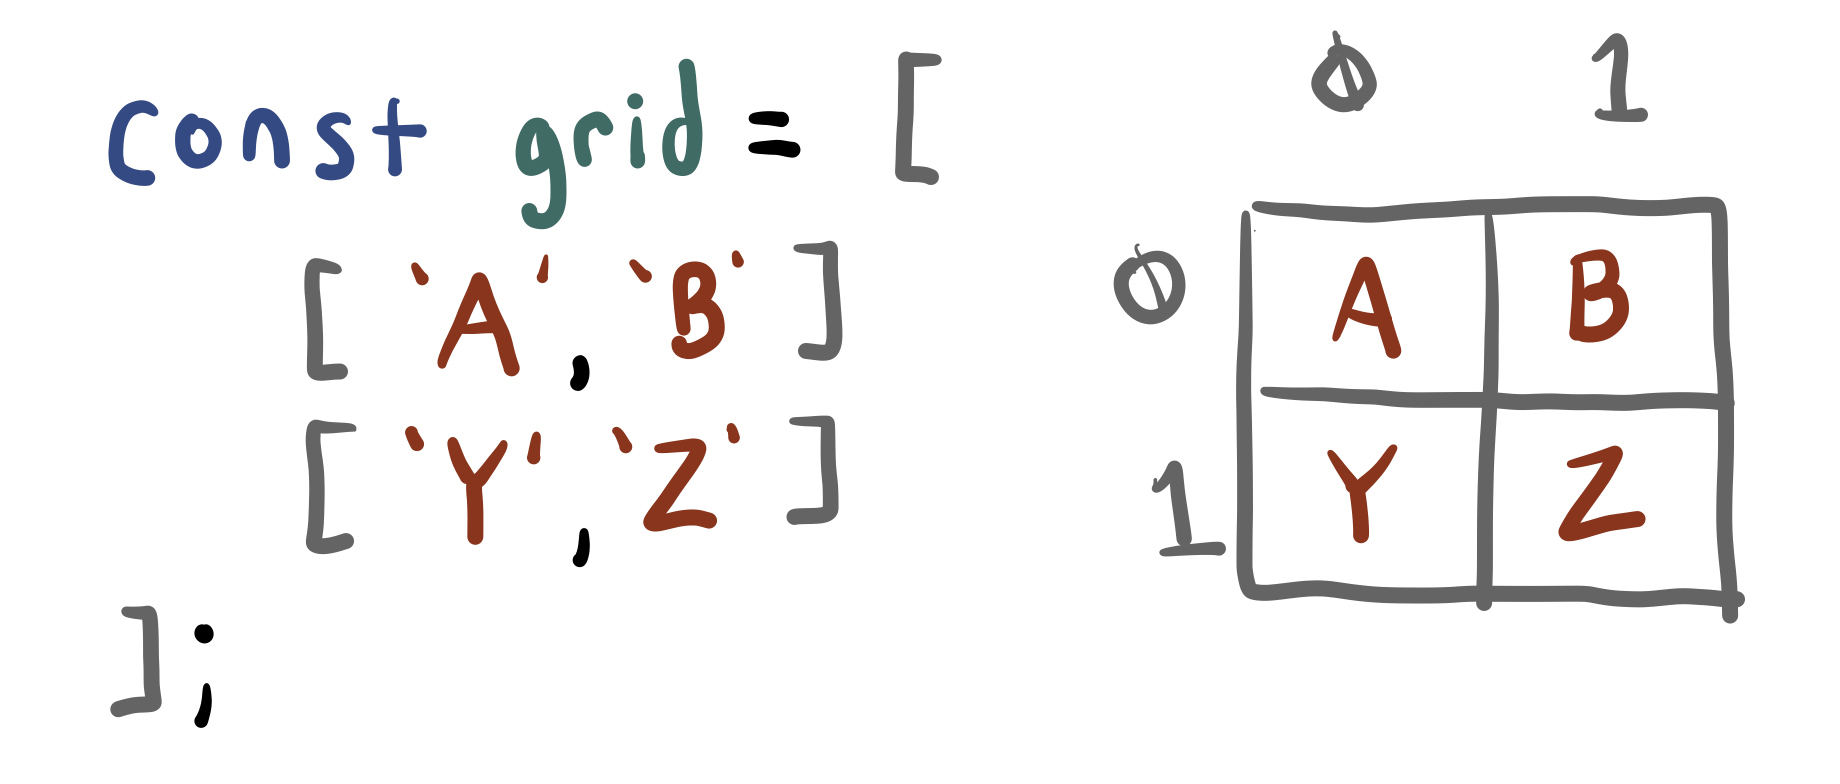 const grid = [
['A', 'B']
['Y', 'Z']
];
0 1
0 A B
1 Y Z